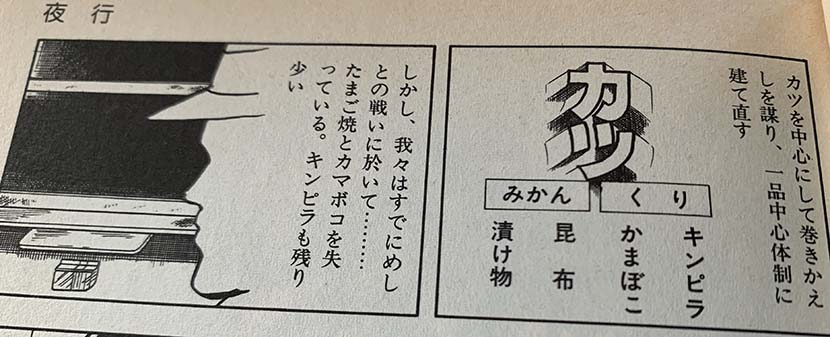 夜行
カツを中心にして巻きかえ
しを謀り、一品中心体制に
建て直す
カツ
くり
みかん
キンピラ
かまぼこ
昆布
漬け物
しかし、我々はすでにめし
との戦いに於いて………
たまご焼とカマボコを失
っている。キンピラも残り
少い